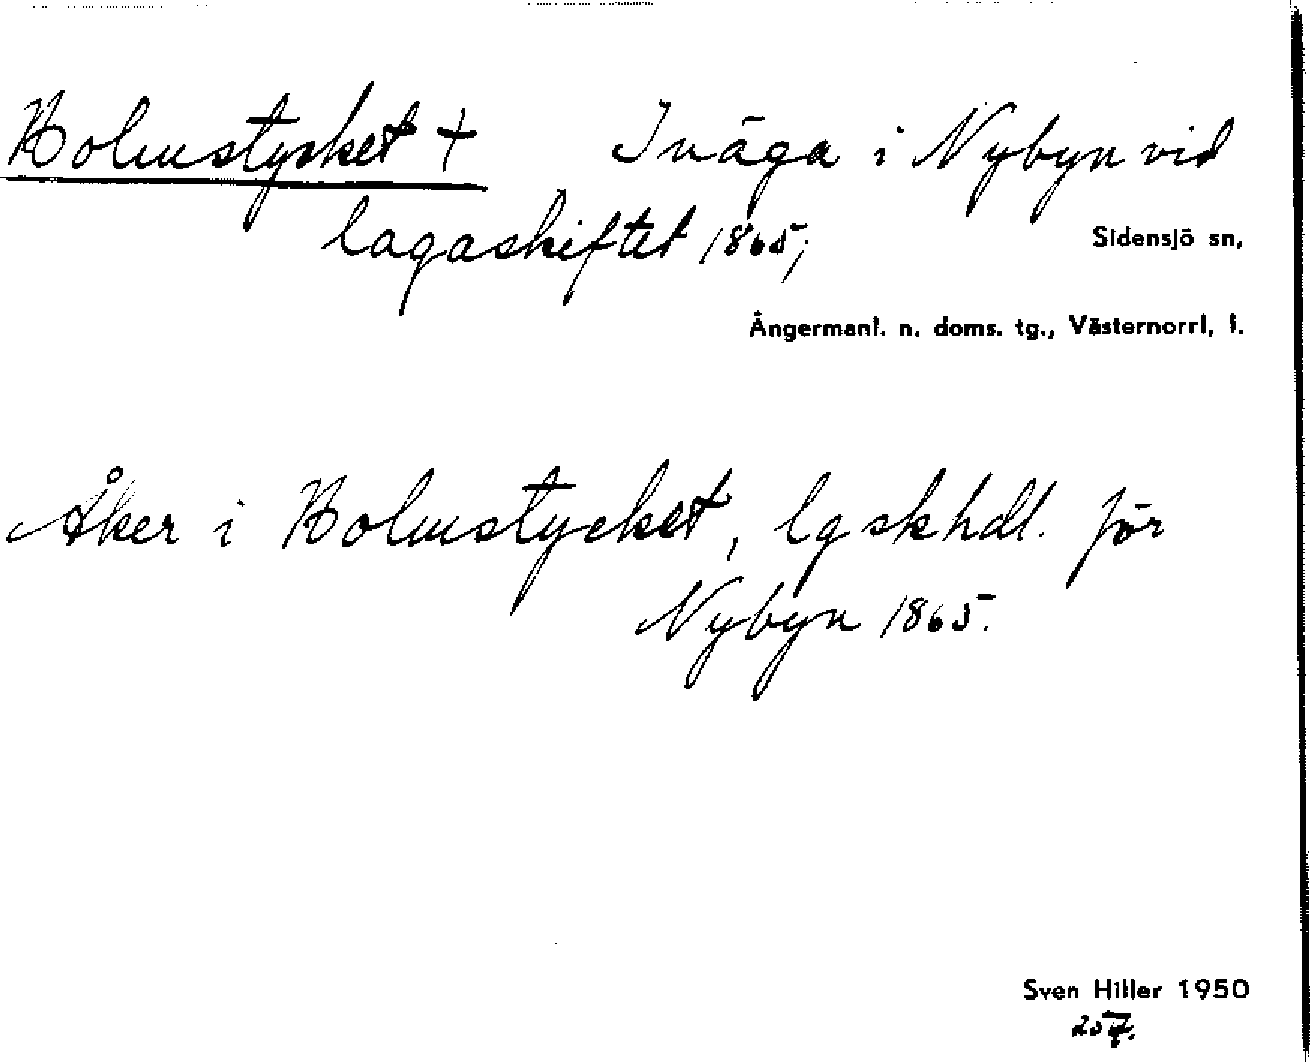 Holmstycket † Inäga i Nybyn vid
lagaskiftet 1865;
Sidensjö sn,
Ångermanl. n. doms. tg., Västernorrl. l.
Åker i Holmstycket, lgskhdl. för
Nybyn 1865.
Sven Hiller 1950